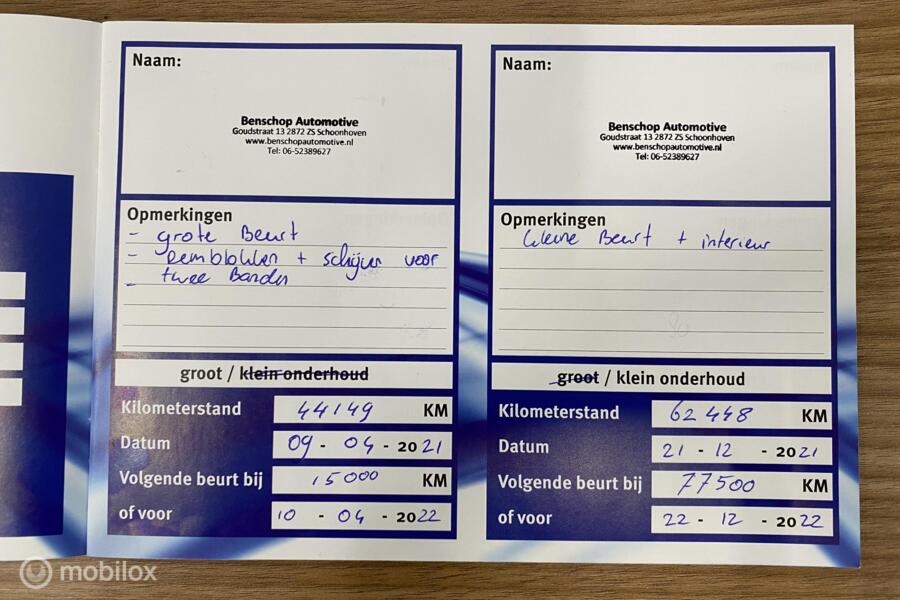 Naam:
Benschop Automotive
Goudstraat 13 2872 ZS Schoonhoven
www.benschopautomotive.nl
Tel: 06-52389627
Opmerkingen
- grote Beurt
- Remblokken + schijven voor
- twee Banden
groot / klein onderhoud
Kilometerstand 44149 KM
Datum 09 - 04 - 2021
Volgende beurt bij 15000 KM
of voor 10 - 04 - 2022
Naam:
Benschop Automotive
Goudstraat 13 2872 ZS Schoonhoven
www.benschopautomotive.nl
Tel: 06-52389627
Opmerkingen
kleine Beurt + interieur
groot / klein onderhoud
Kilometerstand 62448 KM
Datum 21 - 12 - 2021
Volgende beurt bij 77500 KM
of voor 22 - 12 - 2022
mobilox